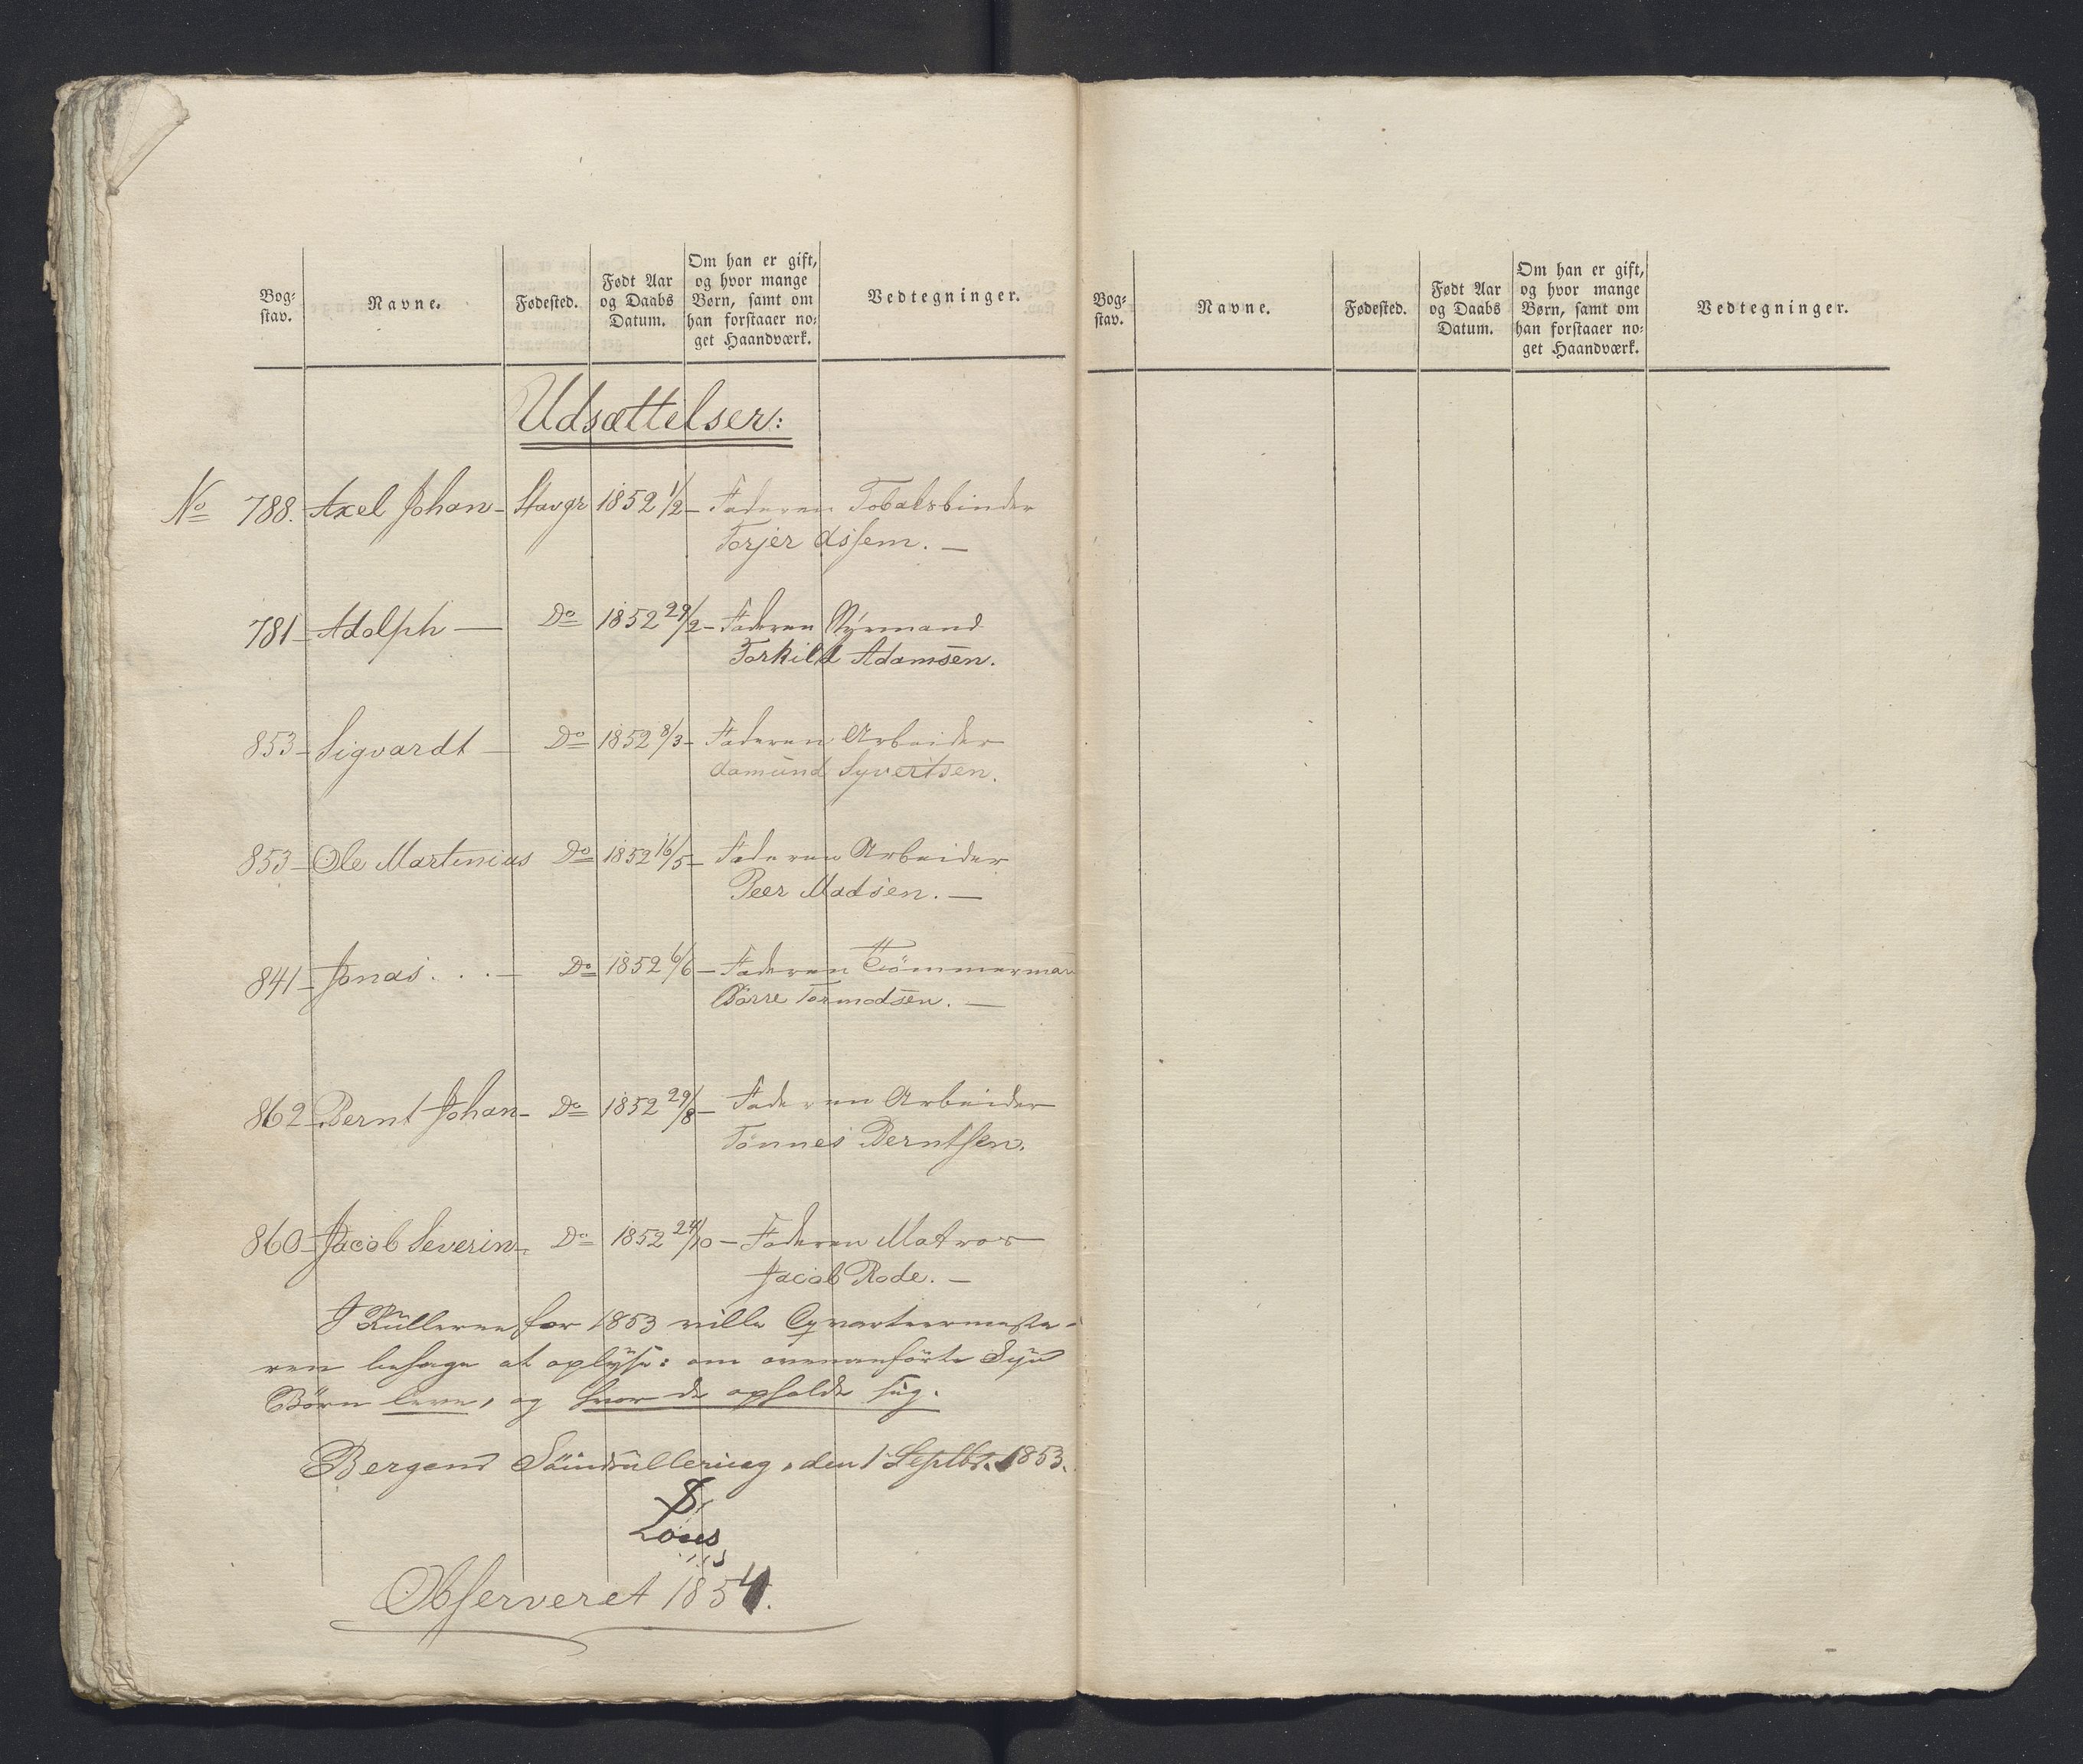 Bog- Navne. Fødested. Født Aar Om han er gift, Vedtegninger.
stav. og Daabs og hvor mange
Datum. Børn, samt om
han forstaaer no-
get Haandværk.
Udsættelser:
No 788. Axel Johan - Stavgr 1852 1/2 - Faderen Tobaksbinder
Torjer
781 - Adolph - Do 1852 29/2 - Faderen Styrmand
Torkild Adamsen.
853 - Sigvardt - Do 1852 8/3 - Faderen Arbeider
Aamund Syvertsen.
853 - Ole Martinius Do 1852 16/5 - Faderen Arbeider
Peer Madsen. -
841 - Jonas. . . - Do 1852 6/6 - Faderen Tömmerman
Börre Tormodsen. -
862 - Bernt Johan - Do 1852 29/8 - Faderen Arbeider
Tönnes Berntsen.
860 - Jacob Severin - Do 1852 24/10 - Faderen Matros
Jacob Rode. -
I Rullerne for 1853 ville Qvarteermeste-
ren behage at oplyse: om ovenanförte Syv
Börn leve, og hvor de opholde sig.
Bergens Söindrullering, den 1 Septbr. 1853.
Observeret 1854.
Bog- Navne. Fødested. Født Aar Om han er gift, Vedtegninger.
stav. og Daabs og hvor mange
Datum. Børn, samt om
han forstaaer no-
get Haandværk.